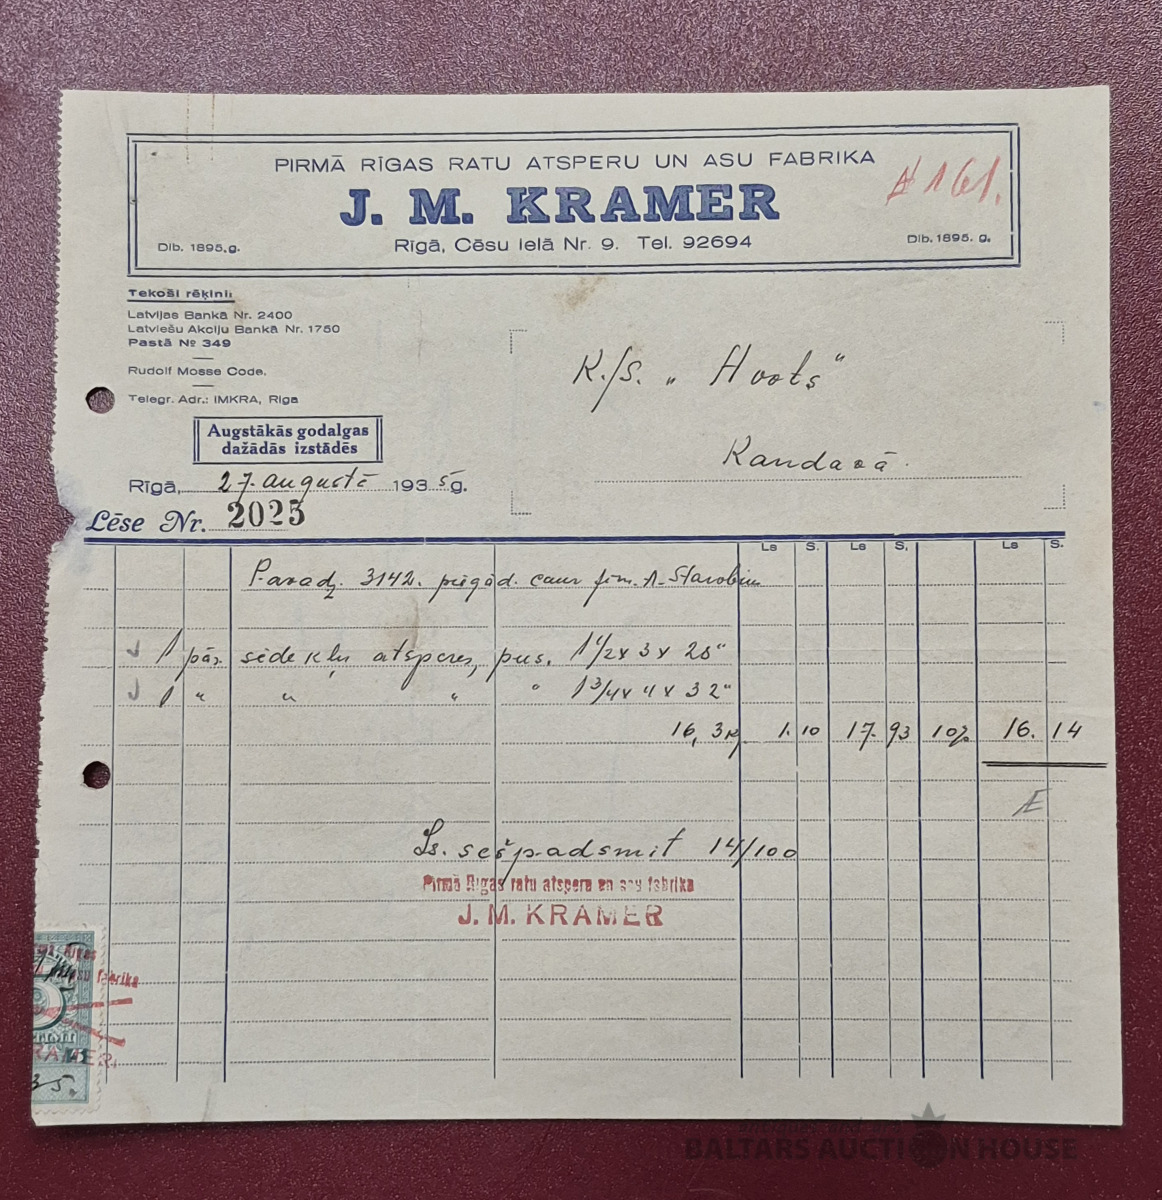 PIRMĀ RĪGAS RATU ATSPERU UN ASU FABRIKA
# 161.
J. M. KRAMER
Dib. 1895. g.
Rīgā, Cēsu ielā Nr. 9. Tel. 92694
Dib. 1895. g.
Tekoši rēķini:
Latvijas Bankā Nr. 2400
Latviešu Akciju Bankā Nr. 1750
Pastā № 349
Rudolf Mosse Code.
Telegr. Adr.: IMKRA, Riga
K./S. „ "
Kandavā.
Augstākās godalgas
dažādās izstādēs
Rīgā, 27. augustā 1935 g.
Lēse Nr. 2025
Ls S. Ls S. Ls S.
Pavadz. 3142. piegād. caur firm. A.
1 pār. sēdekļu atsperes, pus. 1 1/2 x 3 x 28"
1 " " " " 1 3/4 x 4 x 32"
16,3 1.10 17.93 10% 16.14
Ls. sešpadsmit 14/100
Pirmā Rīgas ratu atsperu un asu fabrika
J. M. KRAMER
Rīgas
asu fabrika
5
KRAMER
35.
BALTARS AUCTION HOUSE